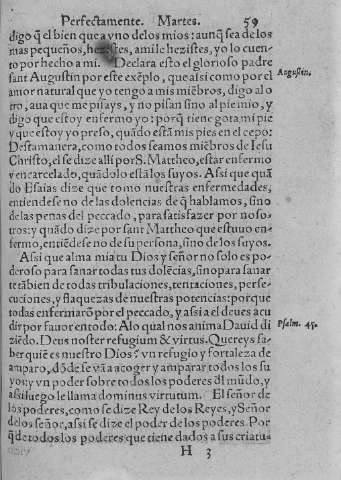 Perfectamente. Martes. 59
digo q̃ el bien que a vno de los mios: aunq̃ sea de los
mas pequeños, hezistes, ami le hezistes, yo lo cuen-
to por hecho a mi. Declara esto el glorioso padre
sant Augustin por este exẽplo, que assi como por el
Augustin.
amor natural que yo tengo a mis miẽbros, digo al o
tro, aua que me pisays, y no pisan sino al pie mio, y
digo que estoy enfermo yo: porq̃ tiene gota mi pie
y que estoy yo preso, quãdo està mis pies en el cepo:
Desta manera, como todos seamos miẽbros de Iesu
Christo, el se dize alli por S. Mattheo, estar enfermo
y encarcelado, quãdo lo està los suyos. Assi que quã
do Esaias dize que tomo nuestras enfermedades,
entiendese no de las dolencias de q̃ hablamos, sino
de las penas del peccado, para satisfazer por noso-
tros: y quãdo dize por sant Mattheo que estuuo en-
fermo, entiẽdese no de su persona, sino de los suyos.
Assi que alma mia tu Dios y señor no solo es po-
deroso para sanar todas tus dolẽcias, sino para sanar
te tãbien de todas tribulaciones, tentaciones, perse-
cuciones, y flaquezas de nuestras potencias: porque
todas enfermarõ por el peccado, y assi a el deues acu
dir por fauor en todo: A lo qual nos anima Dauid di
Psalm. 45.
ziẽdo. Deus noster refugium & virtus. Quereys sa-
ber quiẽ es nuestro Dios? vn refugio y fortaleza de
amparo, dõde se vã a acoger y amparar todos los su
yos: y vn poder sobre todos los poderes dl mũdo, y
assi luego le llama dominus virtutum. El señor de
los poderes, como se dize Rey de los Reyes, y Señor
de los señor, assi se dize el señor de los poderes. Por
q̃ de todos los poderes que tiene dados a sus criatu-
H 3